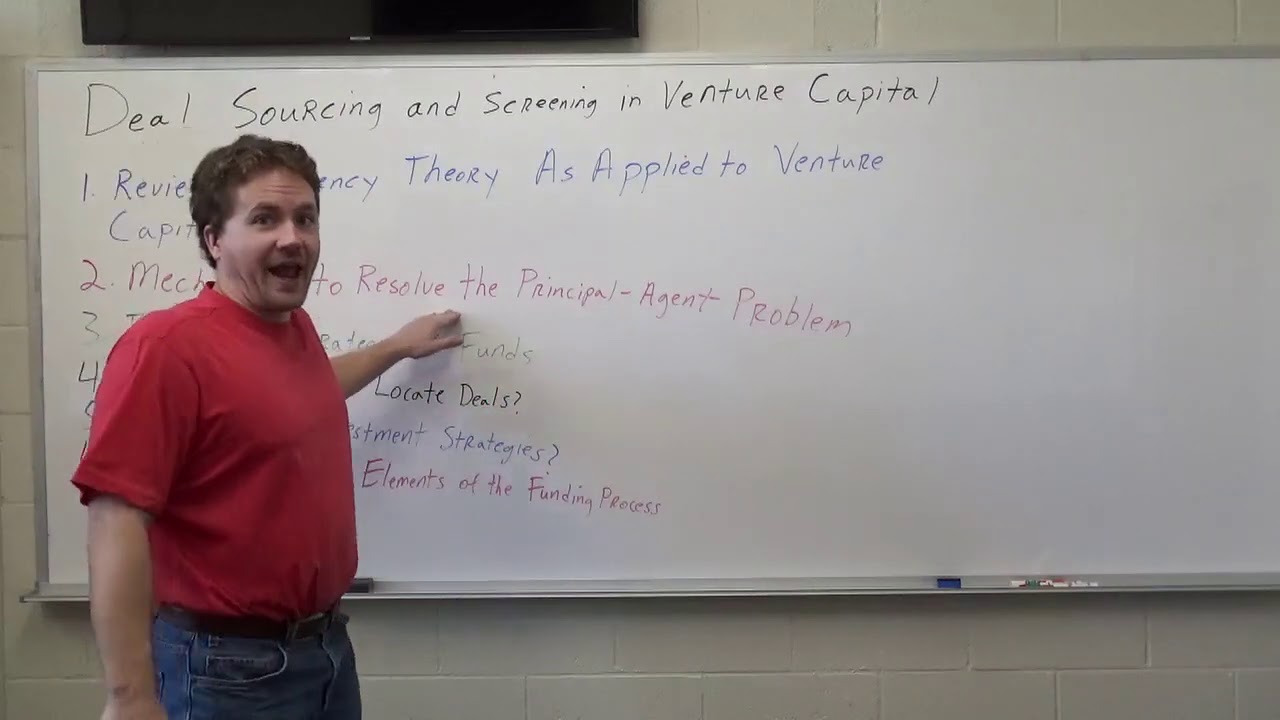 Deal Sourcing and Screening in Venture Capital
1. Revie ency Theory As Applied to Venture
Capit
2. Mech to Resolve the Principal-Agent Problem
3 Funds
4 Locate Deals?
stment Strategies?
Elements of the Funding Process